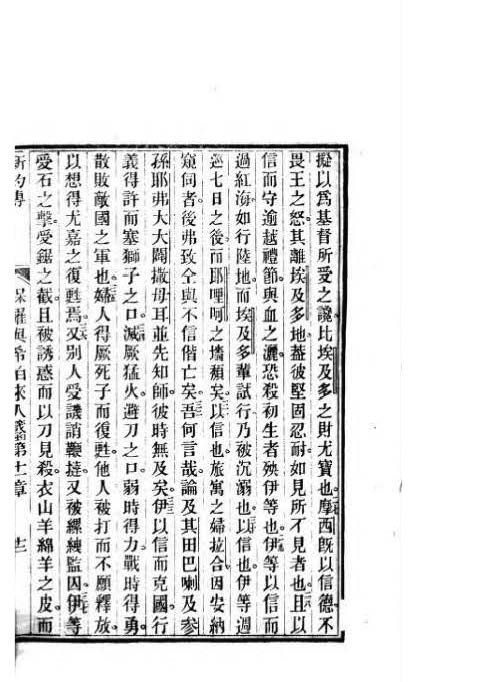 擬以爲基督所受之讒比埃及多之財尤寶也摩西旣以信德不
畏王之怒其離埃及多地蓋彼堅固忍耐如見所不見者也且以
信而守逾越禮節與血之灑恐殺初生者殃伊等也伊等以信而
過紅海如行陸地而埃及多輩試行乃被沉溺也以信也伊等週
巡七日之後而耶哩呵之墻頹矣以信也旅寓之婦拉合因安納
窺伺者後弗致全與不信偕亡矣吾何言哉論及其田巴喇及參
孫耶弗大大闢撒母耳並先知師彼時無及矣伊以信而克國行
義得許而塞獅子之口滅厥猛火避刀之口弱時得力戰時得勇
散敗敵國之軍也婦人得厥死子而復甦他人被打而不願釋放
以想得尤嘉之復甦焉又別人受譏誚鞭撻又被縲絏監囚伊等
愛石之擊受鋸之截且被誘惑而以刀見殺衣山羊綿羊之皮而
保羅與希伯來人 第十一章